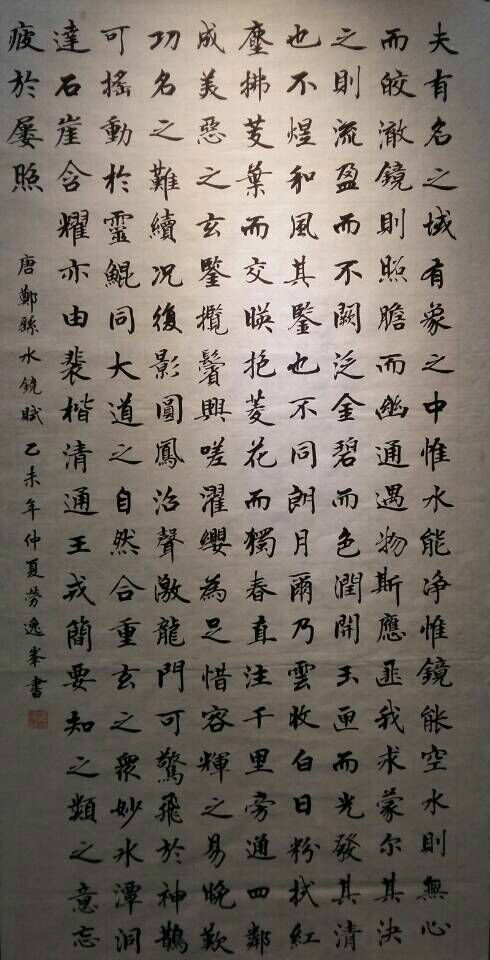 夫有名之域有象之中惟水能净惟鏡能空水則無心
而皎澈鏡則照膽而幽通遇物斯應匪我求蒙尔其決
之則流盈而不闕泛金碧而色潤開玉匣而光發其清
也不煜和風其鑒也不同朗月爾乃雲收白日粉拭紅
塵拂芰葉而交暎挹菱花而獨春直注千里旁通四鄰
成美惡之玄鑒攬鬢興嗟濯纓為足惜容輝之易晚歎
功名之難續况復影圓鳳沼聲激龍門可驚飛於神鵲
可搖動於靈鯤同大道之自然合重玄之眾妙氷潭洞
達石崖含耀亦由裴楷清通王戎簡要知之類之意忘
疲於屡照
唐鄭縣水鏡賦乙未年仲夏勞逸峯書